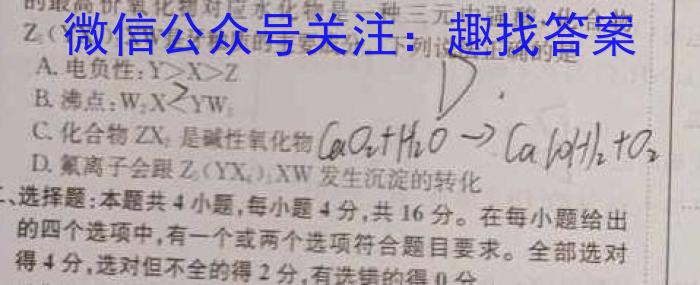 的最高价氧化物对应水化物是一种三元中强酸
微信公众号关注：趣找答案
A. 电负性：Y>X>Z
B. 沸点：W₂X>YW₃
D.
C. 化合物ZX₂是碱性氧化物
CaO₂+H₂O→Ca(OH)₂+O₂
D. 氟离子会跟Z₅(YX₄)₃XW发生沉淀的转化
二、选择题：本题共4小题，每小题4分，共16分。在每小题给出
的四个选项中，有一个或两个选项符合题目要求。全部选对
得4分，选对但不全的得2分，有选错的得0分